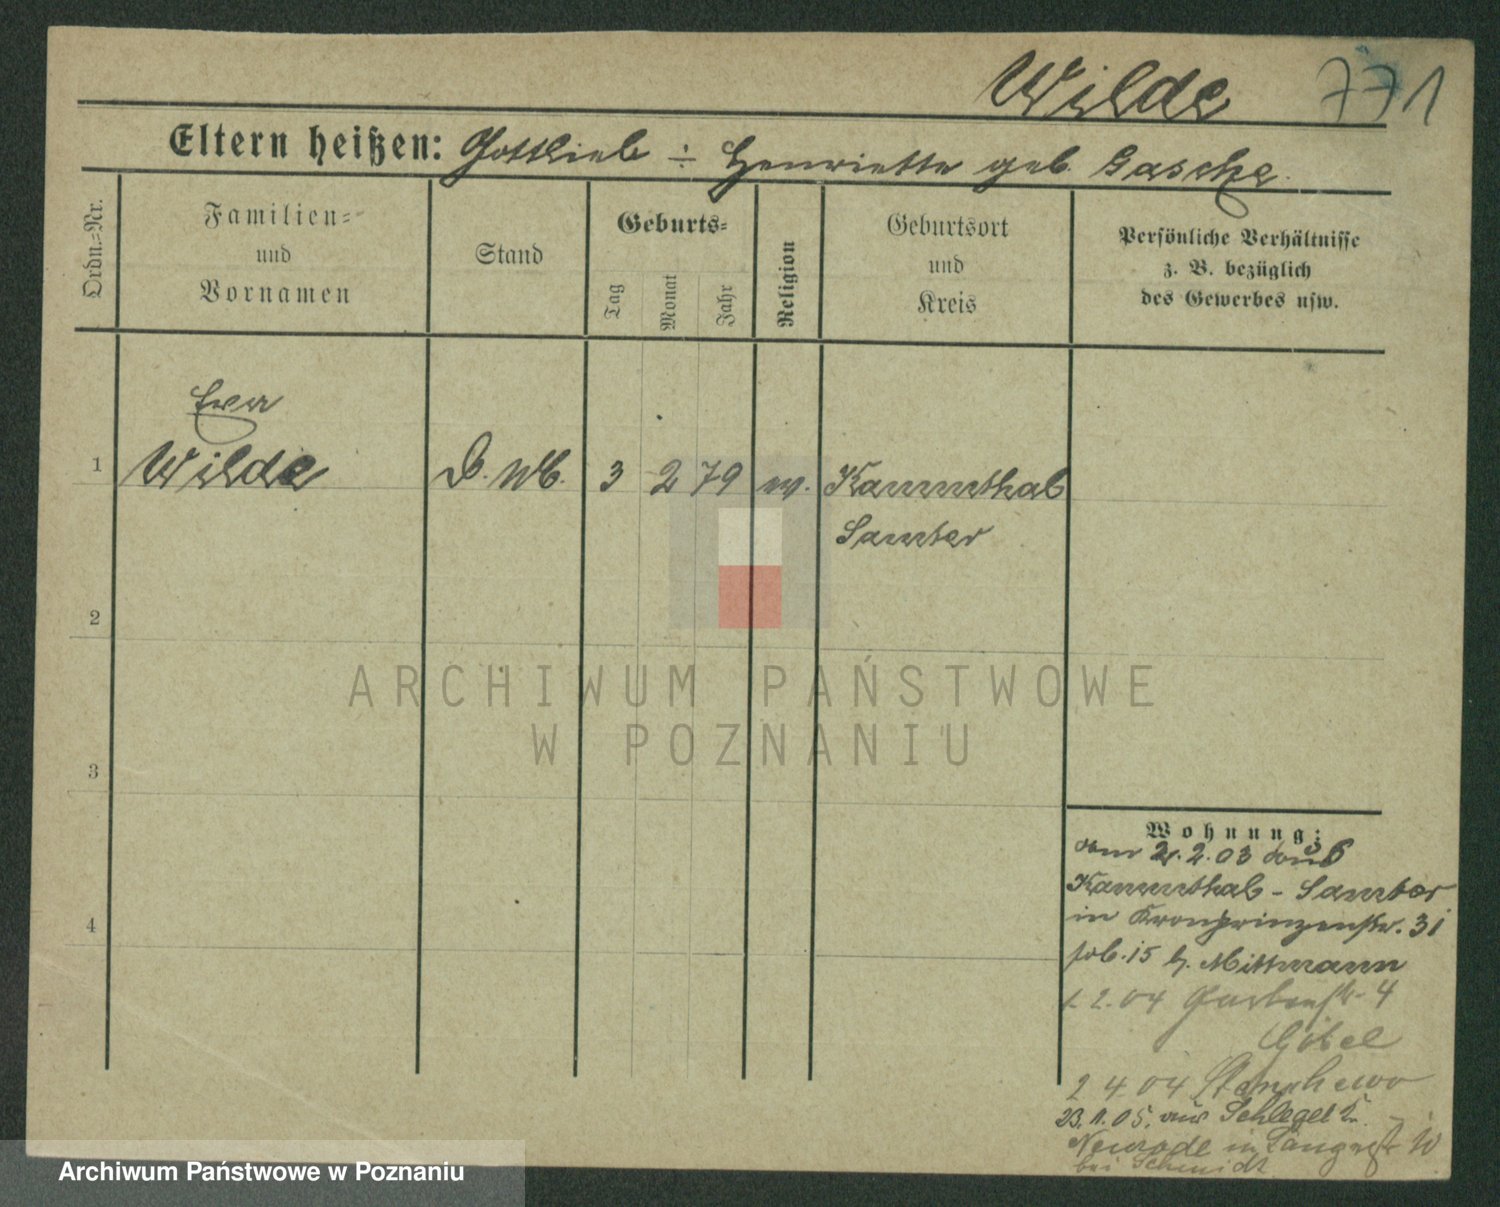 Wilde 771
Eltern heißen: Gottlieb ÷ Henriette geb. Gasche.
Ordn.=Nr.
Familien=
und
Vornamen
Stand
Geburts=
Tag
Monat
Jahr
Religion
Geburtsort
und
Kreis
Persönliche Verhältnisse
z. B. bezüglich
des Gewerbes usw.
Eva
1 Wilde 3 2 79 ev. Kammthal
Samter
2
3
4
Wohnung:
2.03
Kammthal - Samter
in Kronprinzenstr. 31
15 b. Mittmann
1. 2. 04 Gartenstr. 4
Göbel
2 4. 04
23. 1. 05. aus Schlegel
Neurode in
bei Schmidt
ARCHIWUM PAŃSTWOWE
W POZNANIU
Archiwum Państwowe w Poznaniu